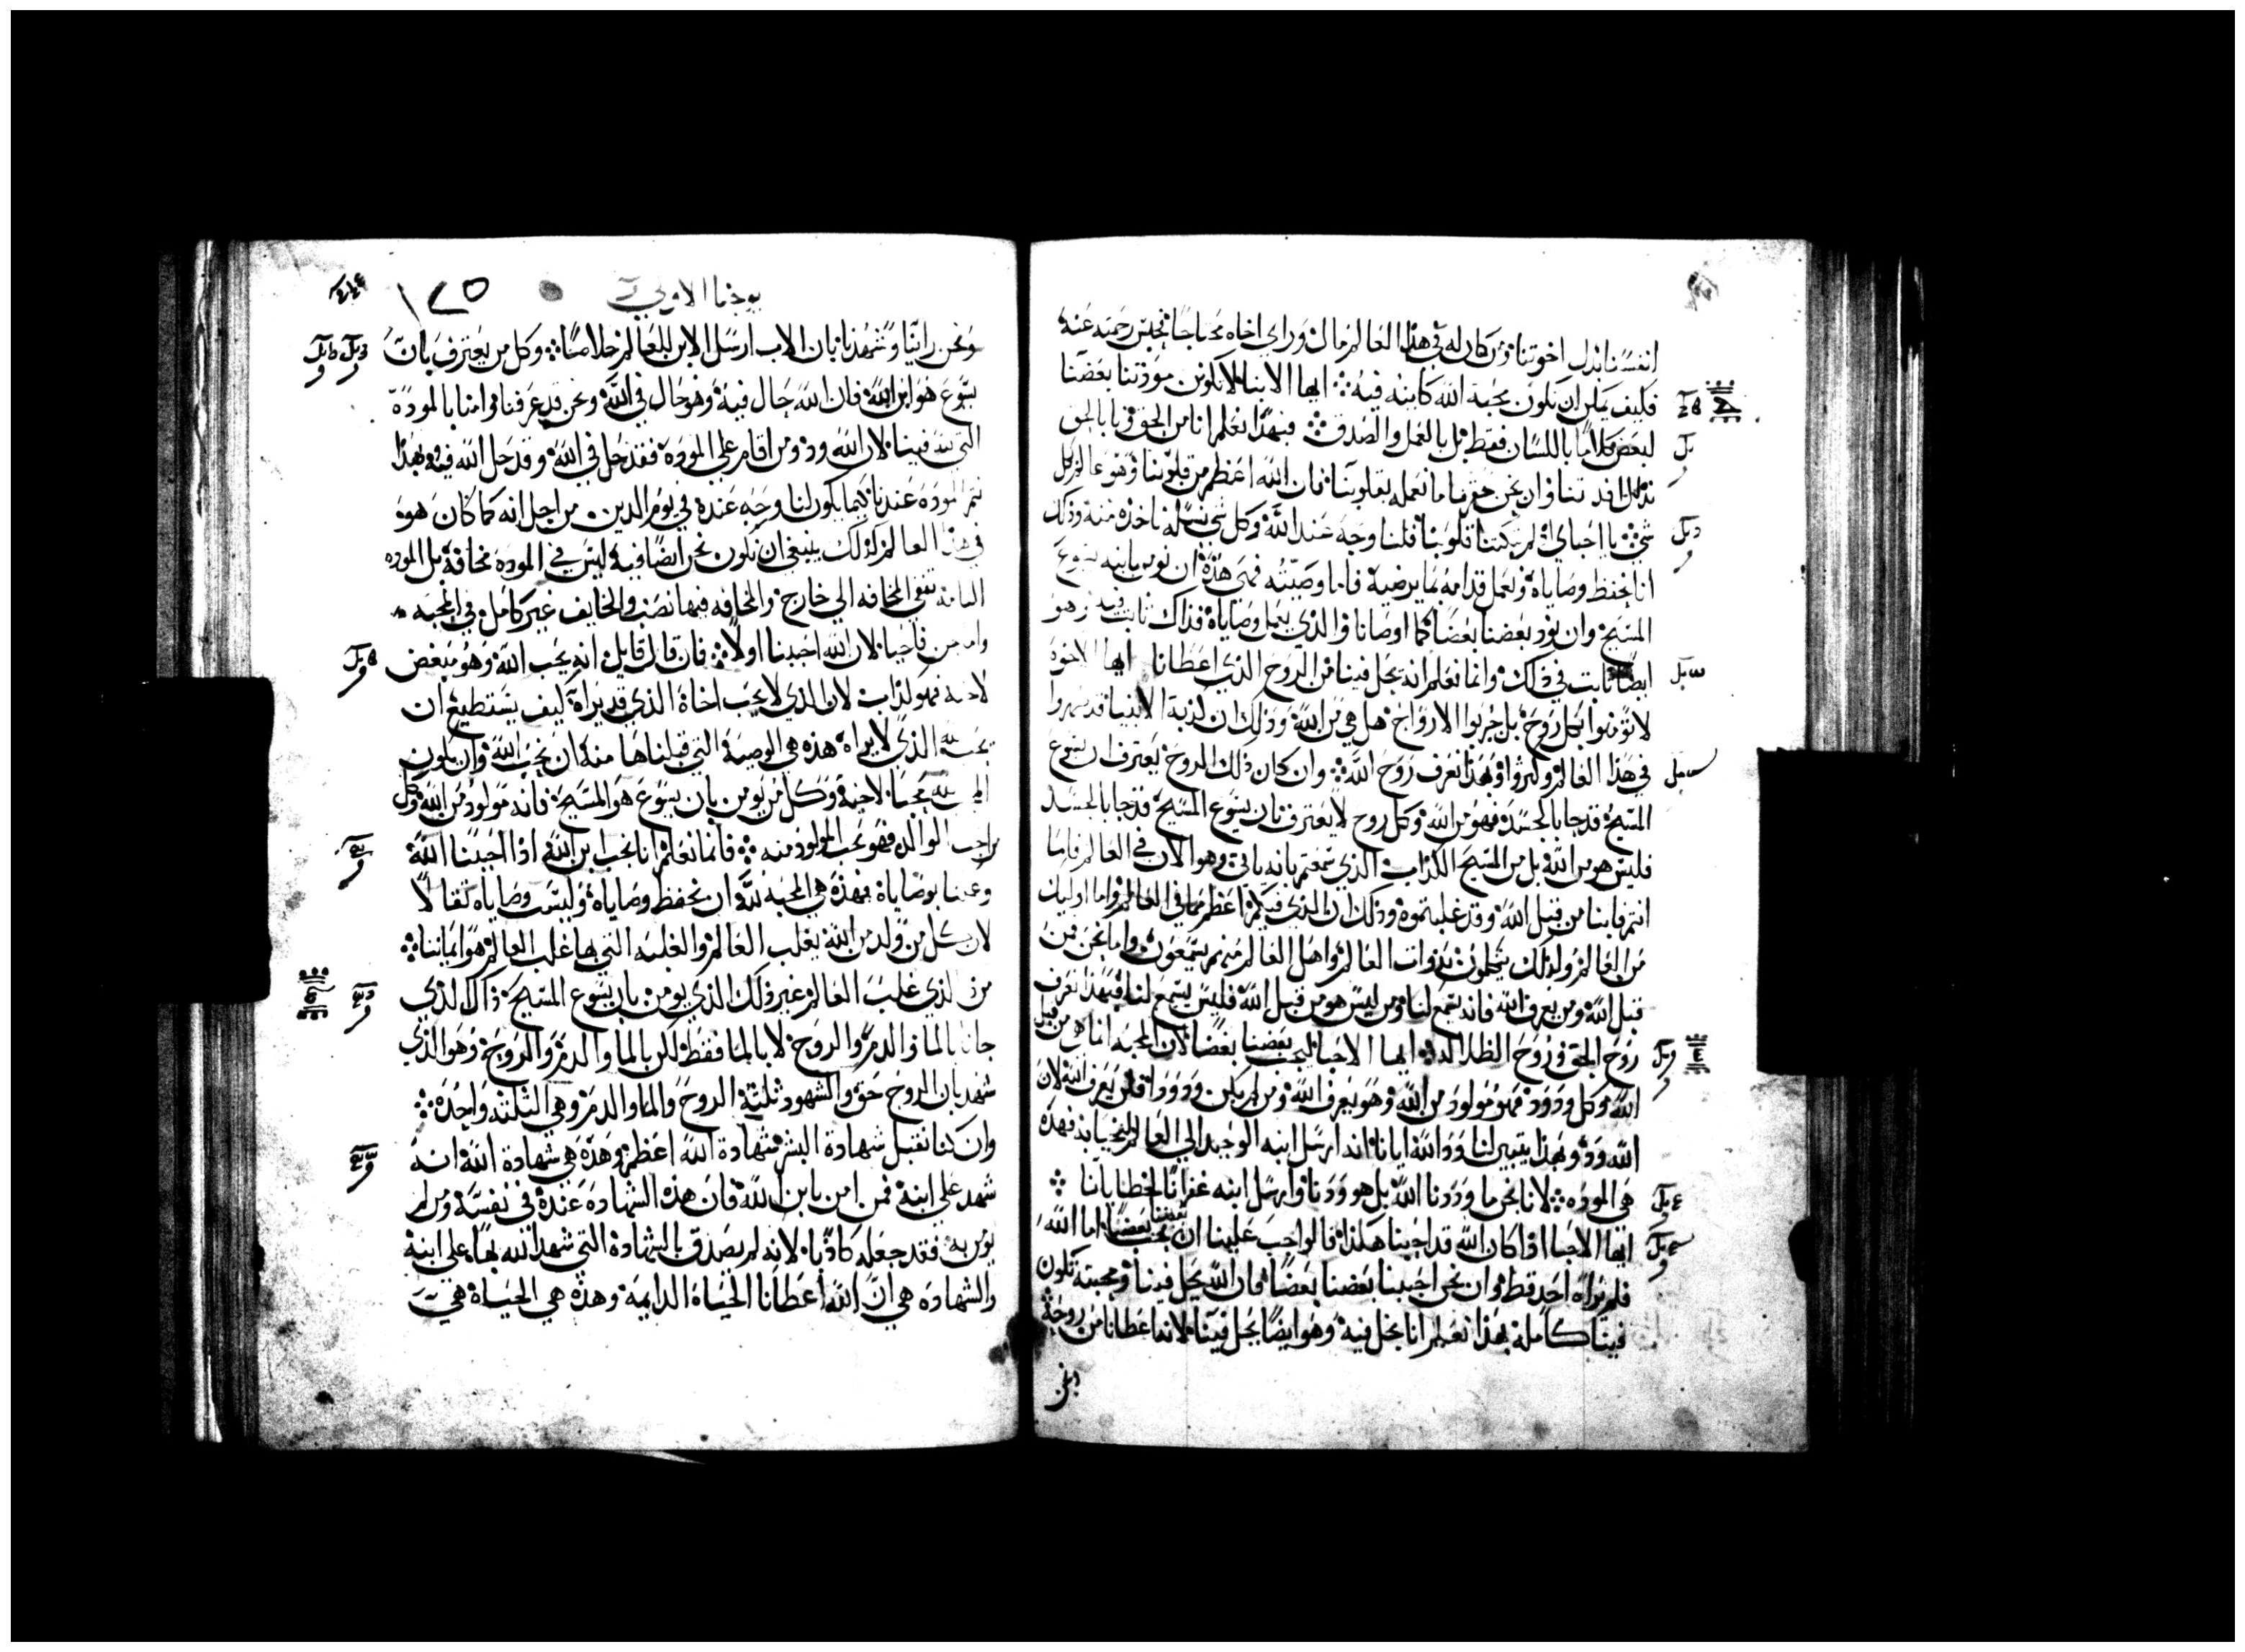 انفسنا بدل اخوتنا ومن كان له في هذا العالم مال وراي اخاه محتاجا فحبس رحمته عنه
فكيف يمكن ان تكون محبة الله كاينه فيه ايها الابنا لا تكونن مودتنا بعضنا
لبعض كلاما باللسان فقط بل بالعمل والصدق فبهذا نعلم انا من الحق وبالحق
فان الله اعظم من قلوبنا وهو عالم كل
شي يا احباي ان لم تبكتنا قلوبنا فلنا وجه عند الله وكل شي نسله ناخذه منه وذلك
انا نحفظ وصاياه ونعمل قدامه بما يرضيه فاما وصيته فهي هذه ان نومن بابنه يسوع
المسيح وان نود بعضنا بعضا كما اوصانا والذي يعمل وصاياه فذاك ثابت فيه وهو
ايضا ثابت في ذلك وانما نعلم انه يحل فينا من الروح الذي اعطانا ايها الاخوة
لا تومنوا بكل روح بل جربوا الارواح هل هي من الله وذلك ان كذبة الانبيا قد ظهروا
في هذا العالم وكثروا وبهذا نعرف روح الله وان كان ذلك الروح يعترف ان يسوع
المسيح قد جا بالجسد فهو من الله وكل روح لا يعترف بان يسوع المسيح قد جا بالجسد
فليس هو من الله بل من المسيح الكذاب الذي سمعتم بانه ياتي وهو الان في العالم فاما
انتم فابنا من قبل الله وقد غلبتموه وذلك ان الذي فيكم اعظم مما في العالم واما اوليك
من العالم ولذلك يتكلمون بذوات العالم واهل العالم منهم يسمعون واما نحن فمن
قبل الله ومن يعرف الله فانه يسمع لنا ومن ليس هو من قبل الله فليس يسمع لنا فبهذا نعرف
روح الحق وروح الضلاله ايها الاحبا ليحب بعضنا بعضا لان المحبه انما هي من قبل
الله وكل ودود فهو مولود من الله وهو يعرف الله ومن لم يكن ودودا فلن يعرف الله لان
الله ود وبهذا يتبين لنا ود الله ايانا انه ارسل ابنه الوحيد الي العالم لنحيا به فهذه
هي الموده لانا نحن ما وددنا الله بل هو ودنا وارسل ابنه غفرانا لخطايانا
ايها الاحبا اذا كان الله قد احبنا هكذا فالواجب علينا ان يحب بعضنا بعضا اما الله
فلم يراه احد قط وان نحن احببنا بعضنا بعضا فان الله يحل فينا ومحبته تكون
فينا كاملة بهذا نعلم انا نحل فيه وهو ايضا يحل فينا لانه اعطانا من روحه
ونحن
يوحنا الاولي
١٧٥
ونحن راينا وشهدنا بان الاب ارسل الابن للعالم خلاصا وكل من يعترف بان
يسوع هو ابن الله فان الله حال فيه وهو حال في الله ونحن قد عرفنا وامنا بالمودة
التي لله فينا لان الله ود ومن اقام علي الموده فقد حل في الله وقد حل الله فيه وبهذا
تتم الموده عندنا كيما يكون لنا وجه عنده في يوم الدين من اجل انه كما كان هو
في هذا العالم كذلك ينبغي ان نكون نحن ايضا فيه ليس في الموده مخافة بل الموده
التامة تنفي المخافه الي خارج والمخافه فيها نصب والخايف غير كامل في المحبه
لان الله احبنا اولا فان قال قايل انه يحب الله وهو مبغض
لاخيه فهو كذاب لان الذي لا يحب اخاه الذي قد يراه كيف يستطيع ان
يحب الله الذي لا يراه هذه هي الوصية التي قبلناها منه ان يحب الله وان يكون
المحب لله محبا لاخيه وكل من يومن بان يسوع هو المسيح فانه مولود من الله وكل
من احب الوالد فهو يحب المولود منه فانما نعلم انا نحب ابن الله اذا احببنا الله
وعملنا بوصاياه فهذه هي المحبه لله ان نحفظ وصاياه وليست وصاياه ثقالا
لان كل من ولد من الله يغلب العالم والغلبه التي بها غلب العالم هو ايماننا
من الذي غلب العالم غير ذلك الذي يومن بان يسوع المسيح ذاك الذي
جانا بالما والدم والروح لا بالما فقط لكن بالما والدم والروح وهو الذي
شهد بان الروح حق والشهود ثلثة الروح والما والدم وهي الثلثه واحده
وان كنا نقبل شهادة البشر شهادة الله اعظم وهذه هي شهادة الله انه
شهد علي ابنه فمن امن بابن الله فان هذه الشهاده عنده في نفسه ومن لم
يومن به فقد جعله كاذبا لانه لم يصدق بالشهادة التي شهد الله بها علي ابنه
والشهاده هي ان الله اعطانا الحياة الدايمة وهذه هي الحياة هي